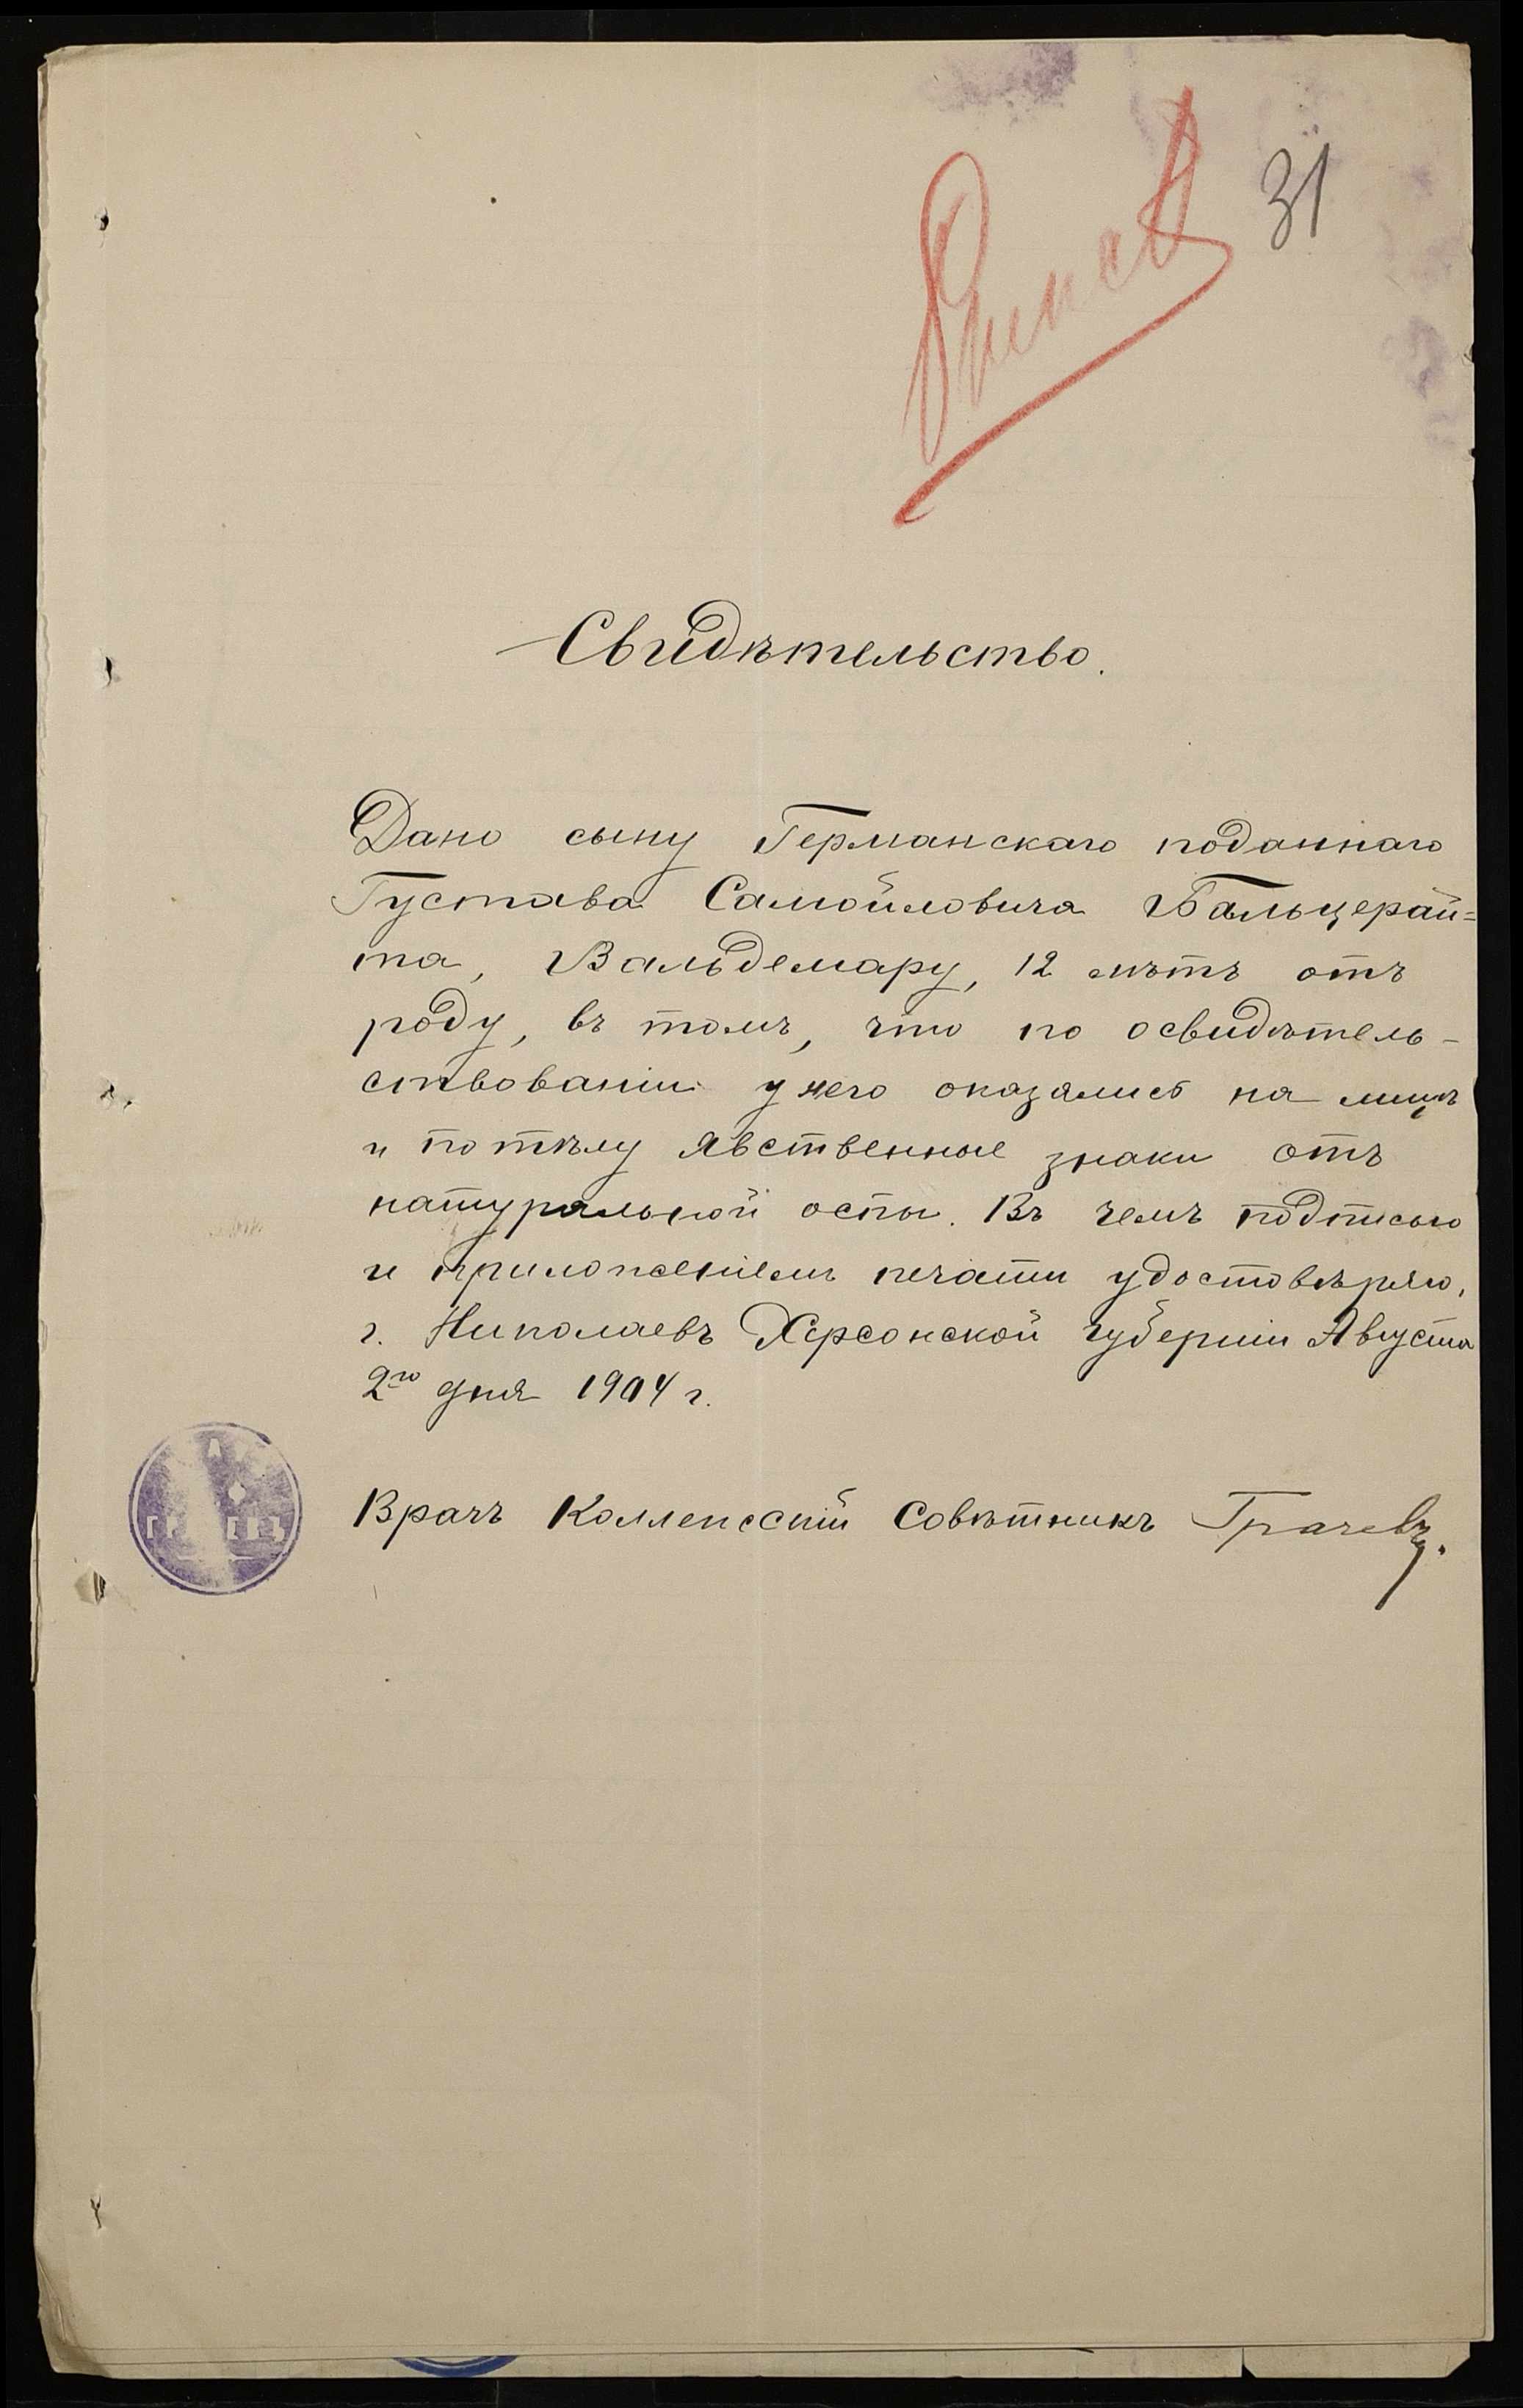 31
Свидѣтельство.
Дано сыну Германскаго поданнаго
Густава Самойловича Бальцерай=
та, Вальдемару, 12 лѣтъ отъ
роду, въ томъ, что по освидѣтель-
ствованіи у него оказались на лицѣ
и по тѣлу явственные знаки отъ
натуральной оспы. Въ чемъ подписью
и приложеніемъ печати удостовѣряю.
г. Николаевъ Херсонской губерніи Августа
2го дня 1904 г.
Врачъ Коллежскій Совѣтникъ Грачевъ.